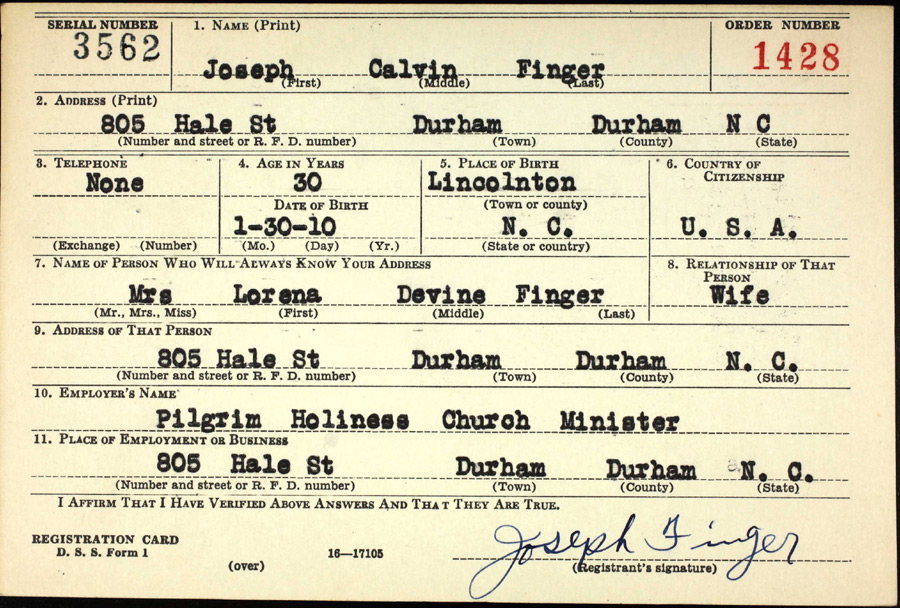 SERIAL NUMBER 1. NAME (Print) ORDER NUMBER
3562 1428
Joseph Calvin Finger
(First) (Middle) (Last)
2. ADDRESS (Print)
805 Hale St Durham Durham N C
(Number and street or R. F. D. number) (Town) (County) (State)
3. TELEPHONE 4. AGE IN YEARS 5. PLACE OF BIRTH 6. COUNTRY OF CITIZENSHIP
None 30 Lincolnton
DATE OF BIRTH (Town or county)
1-30-10 N. C. U. S. A.
(Exchange) (Number) (Mo.) (Day) (Yr.) (State or country)
7. NAME OF PERSON WHO WILL ALWAYS KNOW YOUR ADDRESS 8. RELATIONSHIP OF THAT PERSON
Mrs Lorena Devine Finger Wife
(Mr., Mrs., Miss) (First) (Middle) (Last)
9. ADDRESS OF THAT PERSON
805 Hale St Durham Durham N. C.
(Number and street or R. F. D. number) (Town) (County) (State)
10. EMPLOYER'S NAME
Pilgrim Holiness Church Minister
11. PLACE OF EMPLOYMENT OR BUSINESS
805 Hale St Durham Durham N. C.
(Number and street or R. F. D. number) (Town) (County) (State)
I AFFIRM THAT I HAVE VERIFIED ABOVE ANSWERS AND THAT THEY ARE TRUE.
Joseph Finger
REGISTRATION CARD
D. S. S. Form 1 16—17105
(over) (Registrant's signature)